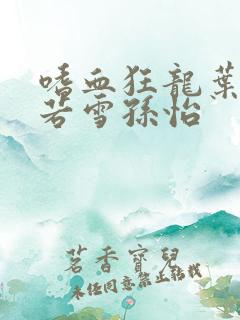 嗜血狂龍葉
若雪孫怡
茗香寶兒
未经同意禁止转载